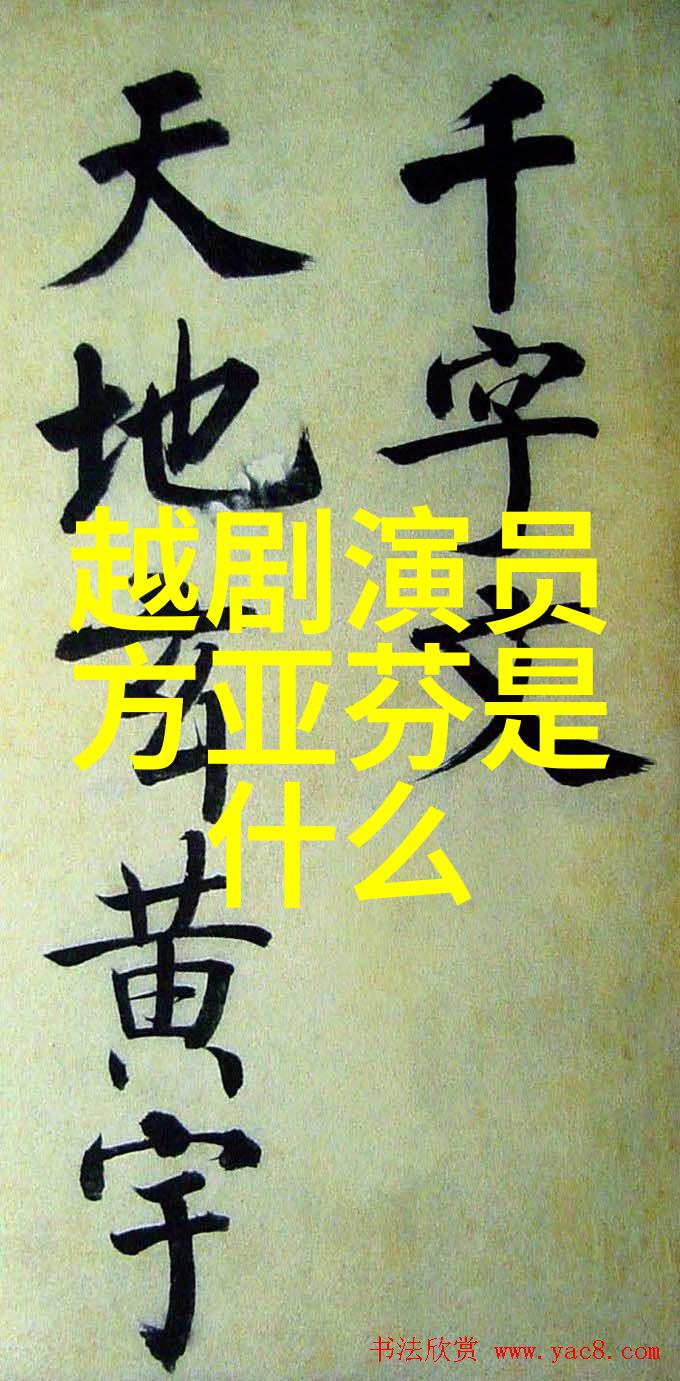 千字文
天地玄黄宇
越剧演员
方亚芬是
什么
书法欣赏 www.yac8.com